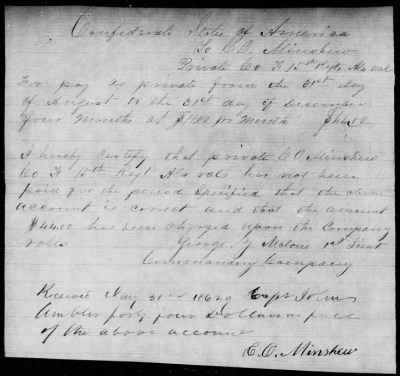 Confederate States of America
To C.O. Minshew
Private Co F 15th Regt Ala vol
For pay as private from the 31st day
of August to the 31st day of December
four months at $11.00 per month $44.00
I hereby certify that private C O Minshew
Co F 15th Regt Ala vols has not been
paid for the period specified that the above
account is correct and that the account
$44.00 has been charged upon the Company
rolls George Y Malone 1st Lieut
Commanding Company
Received 1862 of Capt John
Ambler forty four Dollars in full
of the above account
C. O. Minshew